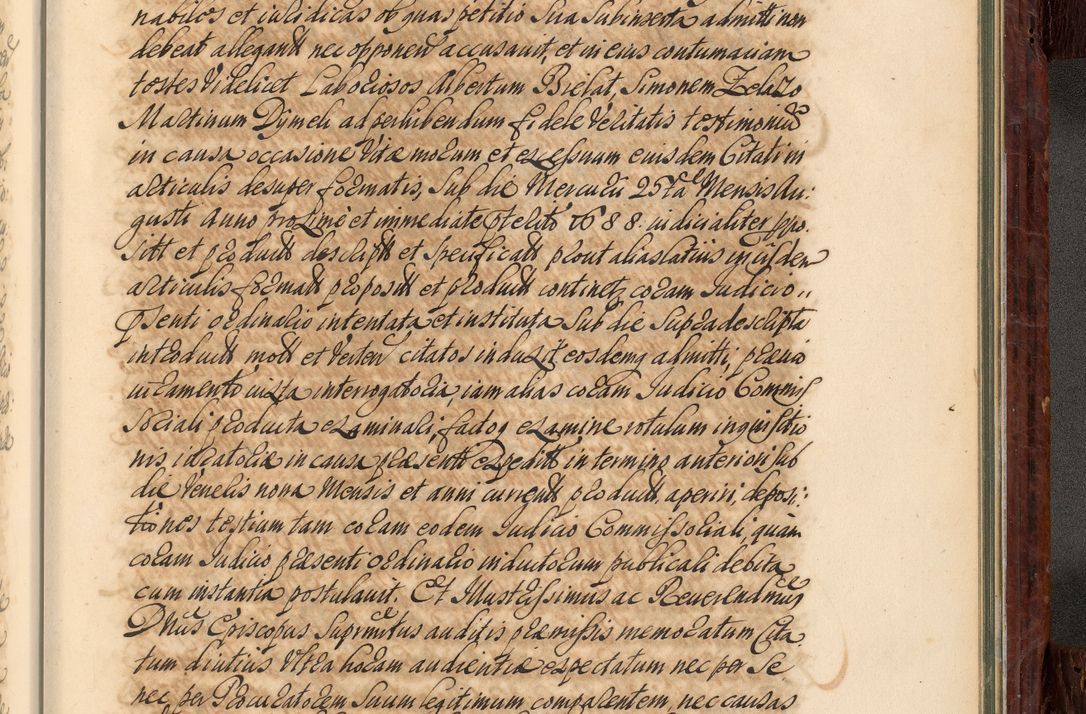 nabiles et iuridicas ob quas petitio sua subinserta admitti non
debeat allegand nec opponend accusavit, et in eius contumaciam
testes videlicet Laboriosos Albertum Bielat, Simonem Zelazo
Martinum Dymeli ad perhibendum fidele veritatis testimoniũ
in causa occasione vitæ morum et excessuum eiusdem Citati in
articulis desuper formatis, sub die Mercurii 25ta Mensis Au:
gusti anno proxime et immediate pterito 1688. iudicialiter ppo.
sitt et produtt descriptt et specificatt prout alias latius in iisdem
articulis formatt propositt et produtt continet, coram Judicio,,
Psenti ordinario intentata et instituta sub die supradescripta
introdutt mott et verten citatos induxit eosdemq admitti, prævio
iuramento iuxta interrogatoria, iam alias coram Judicio Commis
soriali producta examinari, factoq examine rotulum inquisitio
nis in causa præsenti expeditt in termino anteriori sub
die Veneris nona Mensis et anni currentt, produtt, aperiri, deposi:
tiones testium tam coram eodem Judicio Commissoriali, quam
coram Judicio præsenti ordinario inductorum publicari debita
cum instantia postulavit. Et Illustrissimus ac Reverendmus
Dnus Episcopus Suprmitus auditis præmissis memoratum Cita
tum diutius ultra horam audientiæ expectatum nec per se
nec per Procuratorem suum legitimum comparentem, nec causas